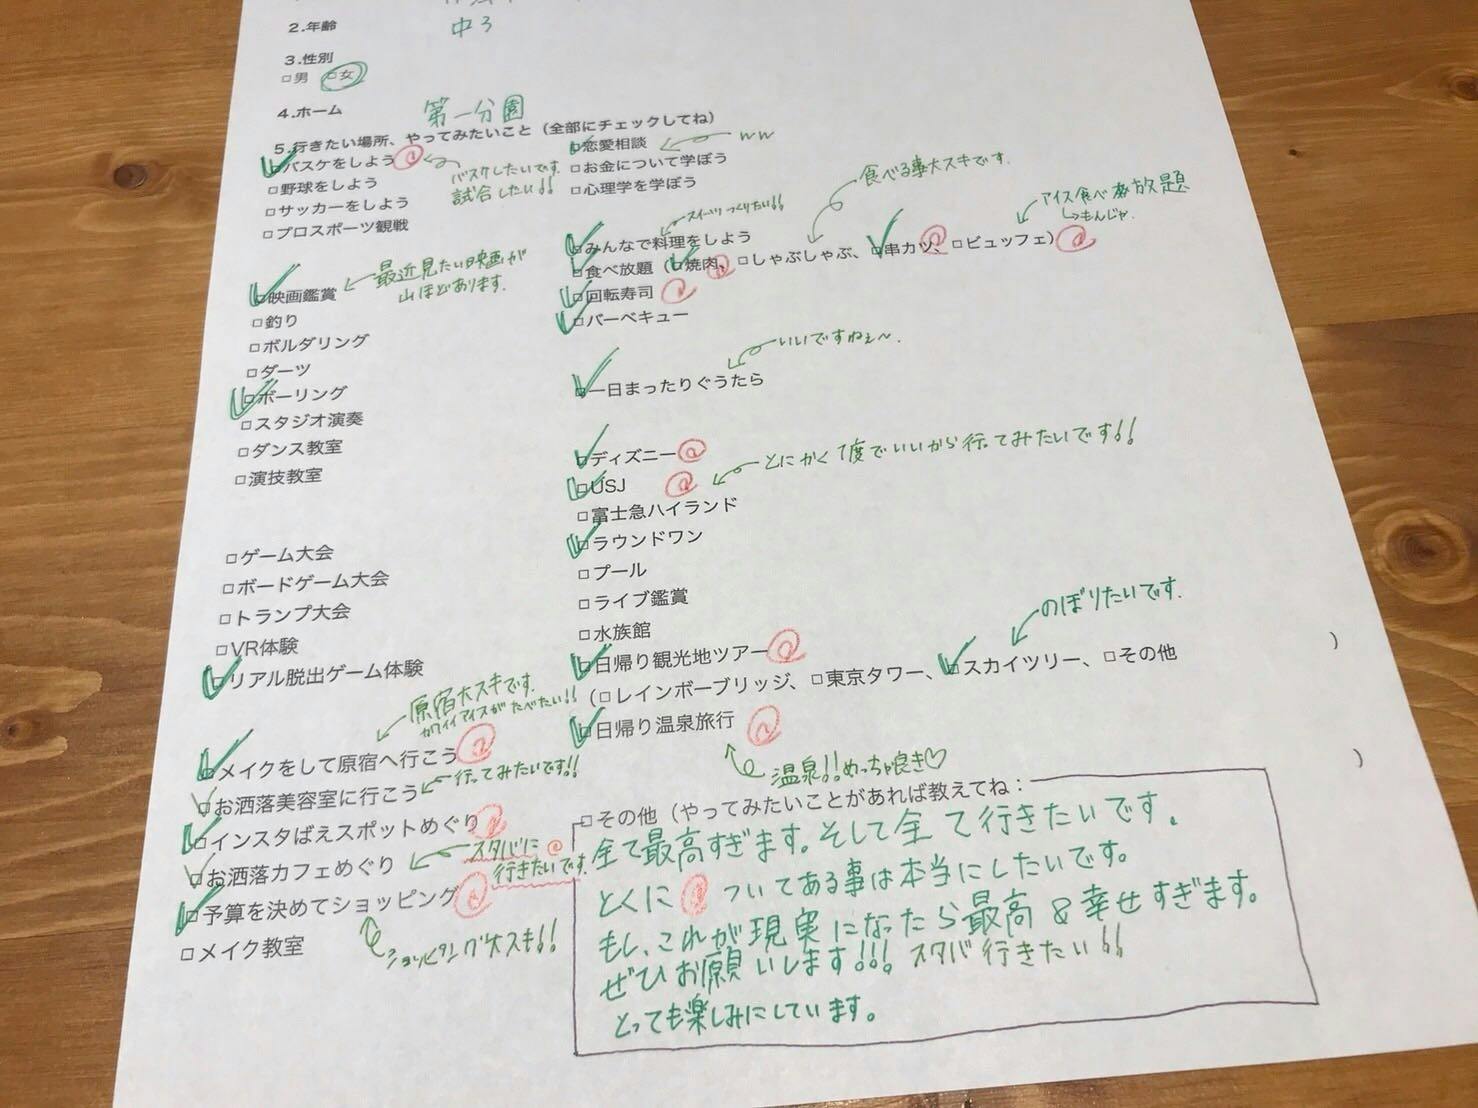 2.年齢 中3
3.性別
□男 □女
4.ホーム 第一分園
5.行きたい場所、やってみたいこと（全部にチェックしてね）
□バスケをしよう
バスケしたいです。
試合したい!!
□野球をしよう
□サッカーをしよう
□プロスポーツ観戦
□映画鑑賞
最近見たい映画が
山ほどあります。
□釣り
□ボルダリング
□ダーツ
□ボーリング
□スタジオ演奏
□ダンス教室
□演技教室
□ゲーム大会
□ボードゲーム大会
□トランプ大会
□VR体験
□リアル脱出ゲーム体験
原宿大スキです。
カワイイアイスがたべたい!!
□メイクをして原宿へ行こう
□お洒落美容室に行こう
行ってみたいです!!
□インスタばえスポットめぐり
□お洒落カフェめぐり
スタバに
行きたいです。
□予算を決めてショッピング
ショッピング大スキ!!
□メイク教室
□恋愛相談
ww
□お金について学ぼう
□心理学を学ぼう
スイーツつくりたい!!
□みんなで料理をしよう
食べる事大スキです。
アイス食べ放題
もんじゃ
□食べ放題（□焼肉、□しゃぶしゃぶ、□串カツ、□ビュッフェ）
□回転寿司
□バーベキュー
いいですねぇ～.
□一日まったりぐうたら
□ディズニー
とにかく1度でいいから行ってみたいです!!
□USJ
□富士急ハイランド
□ラウンドワン
□プール
□ライブ鑑賞
□水族館
□日帰り観光地ツアー
のぼりたいです.
（□レインボーブリッジ、□東京タワー、□スカイツリー、□その他 ）
□日帰り温泉旅行
温泉!!めっちゃ良き♡
□その他（やってみたいことがあれば教えてね： ）
全て最高すぎます。そして全て行きたいです。
とくに ついてある事は本当にしたいです。
もし、これが現実になったら最高&幸せすぎます。
ぜひお願いします!!! スタバ行きたい!!
とっても楽しみにしています。